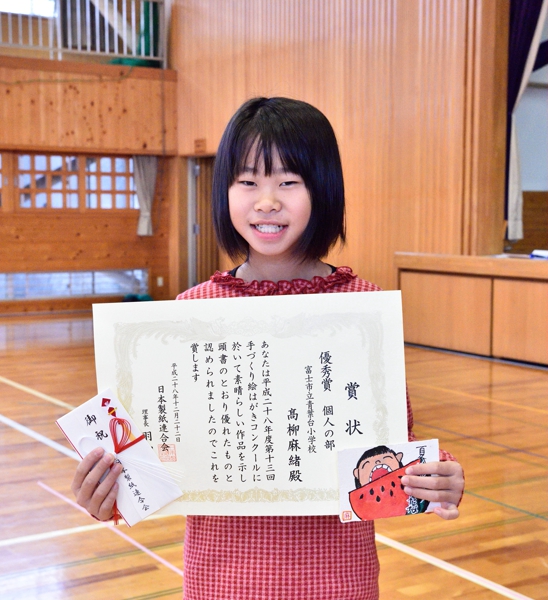 賞状
優秀賞 個人の部
富士市立青葉台小学校
髙柳麻緒殿
あなたは平成二十八年度第十三回
手づくり絵はがきコンクールに
於いて素晴らしい作品を示し
頭書のとおり優れたものと
認められましたのでこれを
賞します
平成二十八年十二月二十二日
日本製紙連合会
理事長
御祝
製紙連合会